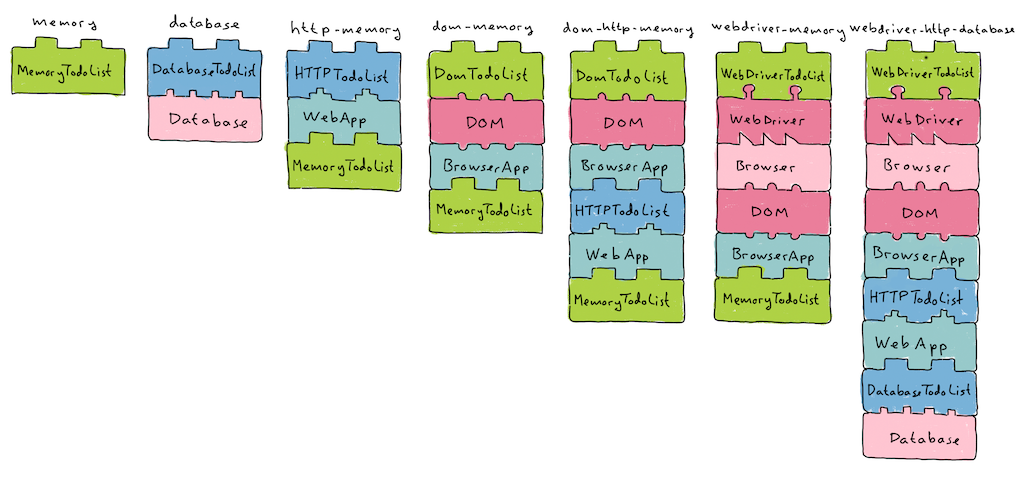 memory
MemoryTodoList
database
DatabaseTodoList
Database
http-memory
HTTPTodoList
WebApp
MemoryTodoList
dom-memory
DomTodoList
DOM
BrowserApp
MemoryTodoList
dom-http-memory
DomTodoList
DOM
BrowserApp
HTTPTodoList
WebApp
MemoryTodoList
webdriver-memory
WebDriverTodoList
WebDriver
Browser
DOM
BrowserApp
MemoryTodoList
webdriver-http-database
WebDriverTodoList
WebDriver
Browser
DOM
BrowserApp
HTTPTodoList
WebApp
DatabaseTodoList
Database